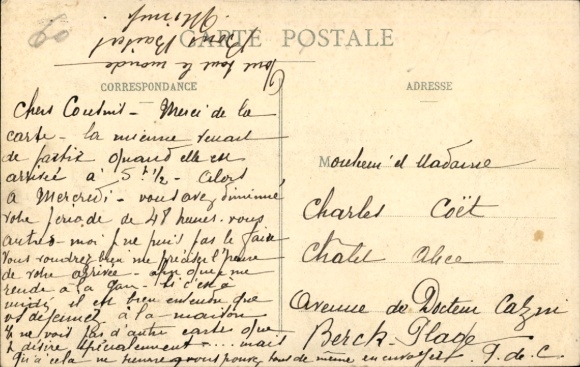 60
CARTE POSTALE
Pour tout le monde
Bons Baisers
CORRESPONDANCE
ADRESSE
Chers Cousins - Merci de la
carte - la mienne venait
de partir quand elle est
arrivée à 5h 1/2 - Alors
à Mercredi - vous avez diminué
votre période de 48 heures - vous
autres - moi je ne puis pas le faire
Vous voudrez bien me préciser l'heure
de votre arrivée - afin que je me
rende à la gare - Si c'est à
midi il est bien entendu que
vs déjeunez à la maison
Je ne vois pas d'autres cartes que
je désire spécialement .... mais
qu'à cela ne tienne vous pouvez tous de même en envoyer
Monsieur et Madame
Charles Coët
Châlet Alice
Avenue du Docteur Cazin
Berck Plage
P. de C.